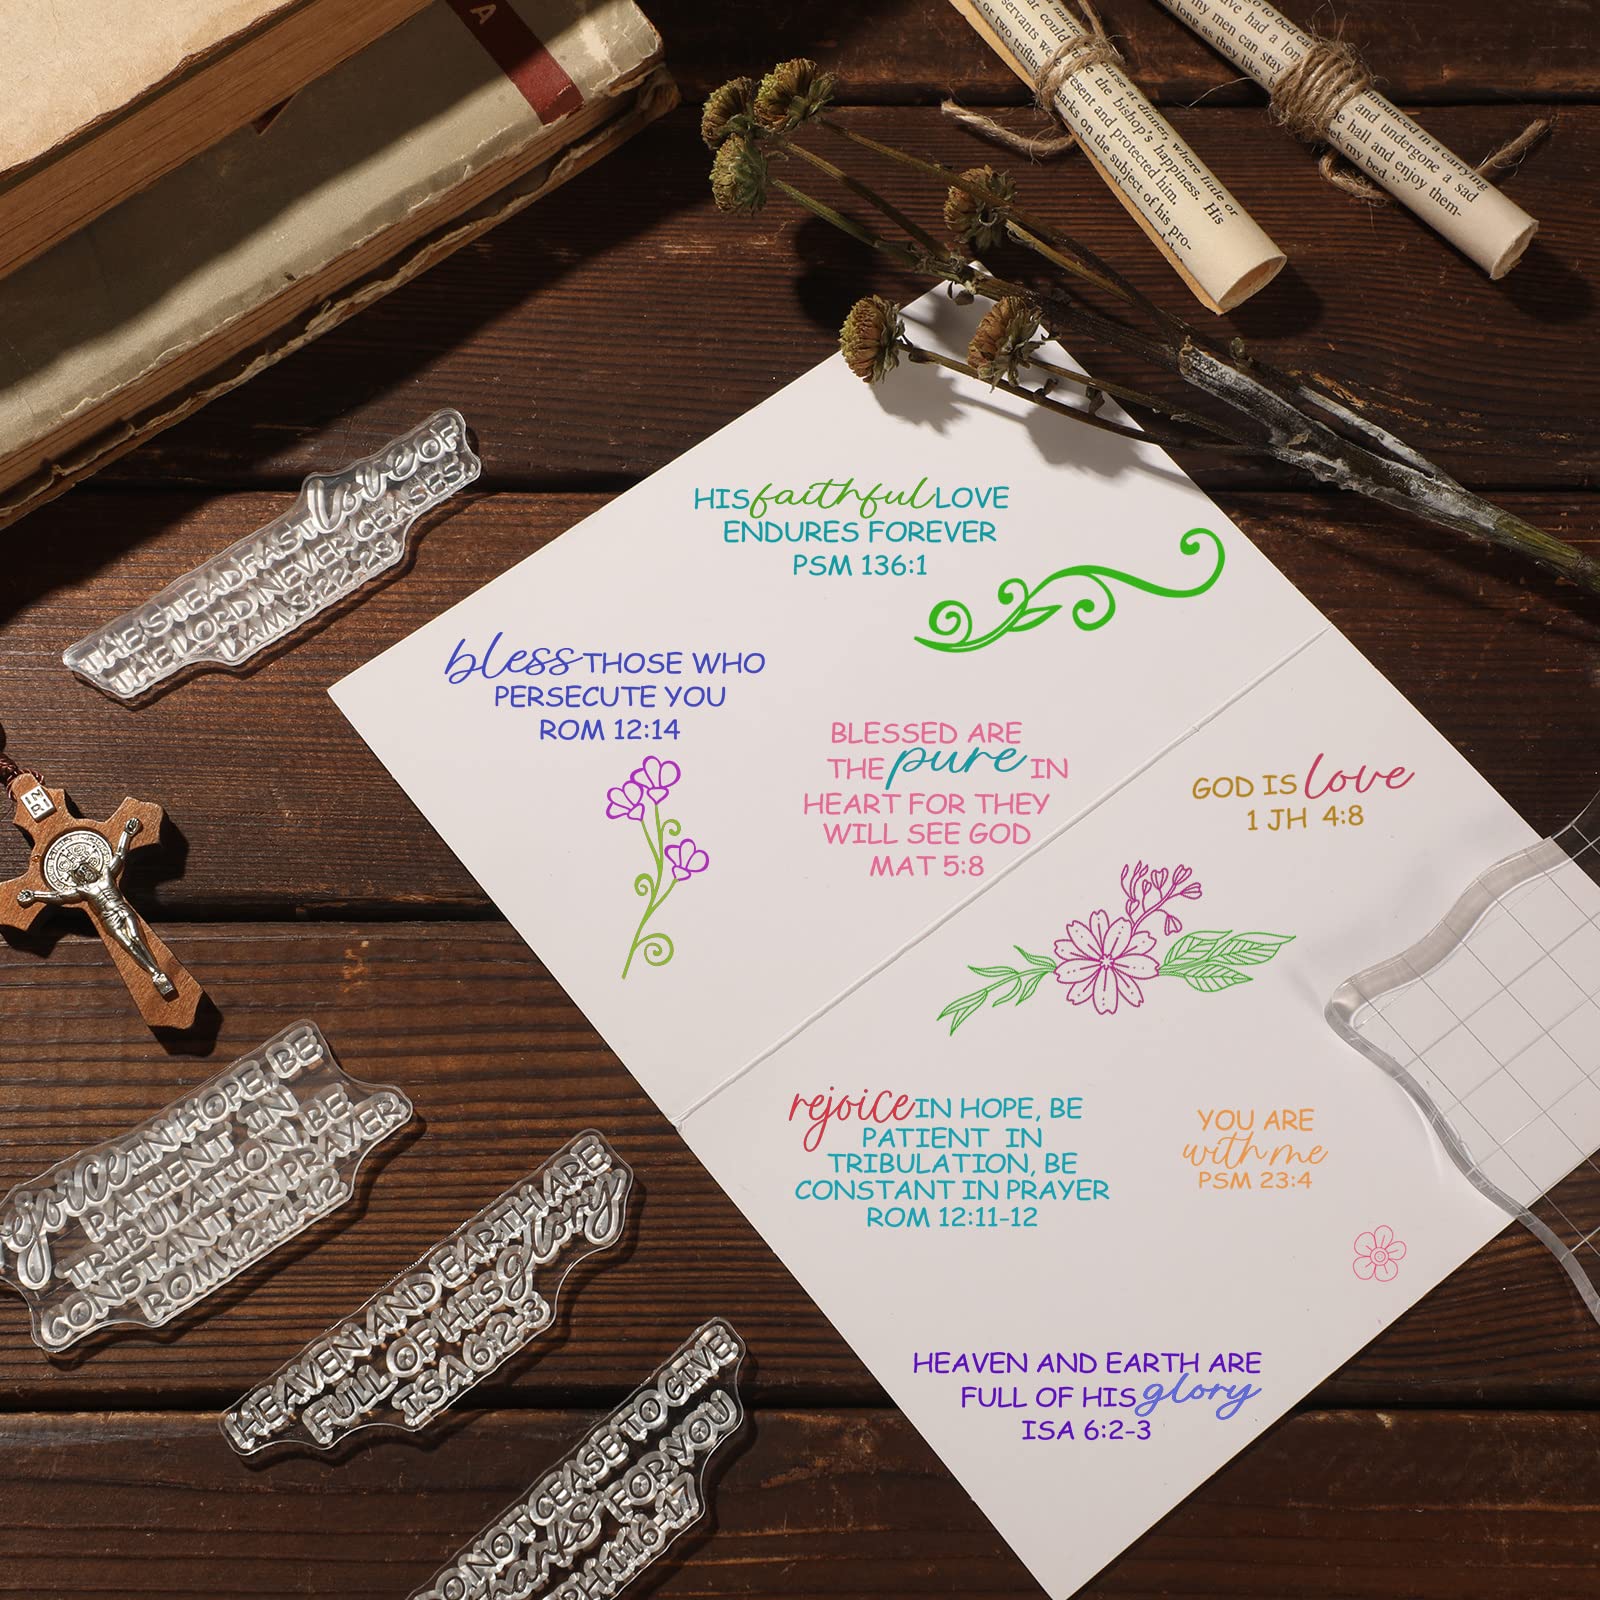 A
servants we
at could
or two trifling
nurse at dinner, where little or
the bishop's happiness. His
esent and protected him.
arks on the subject of his pro-
go to bed
ave had a lon
my men can stay
long as they like
nnounced in a carrying
and undergone a sad
he hall and enjoy them-
my bed."
THE STEADFAST love OF
THE LORD NEVER CEASES.
LAM 3:22-23
HIS faithful LOVE
ENDURES FOREVER
PSM 136:1
bless THOSE WHO
PERSECUTE YOU
ROM 12:14
BLESSED ARE
THE pure IN
HEART FOR THEY
WILL SEE GOD
MAT 5:8
GOD IS love
1 JH 4:8
rejoice IN HOPE, BE
PATIENT IN
TRIBULATION, BE
CONSTANT IN PRAYER
ROM 12:11-12
YOU ARE
with me
PSM 23:4
HEAVEN AND EARTH ARE
FULL OF HIS glory
ISA 6:2-3
rejoice IN HOPE, BE
PATIENT IN
TRIBULATION, BE
CONSTANT IN PRAYER
ROM 12:11-12
HEAVEN AND EARTH ARE
FULL OF HIS glory
ISA 6:2-3
O NOT CEASE TO GIVE
thanks FOR YOU
PH 1:16-17